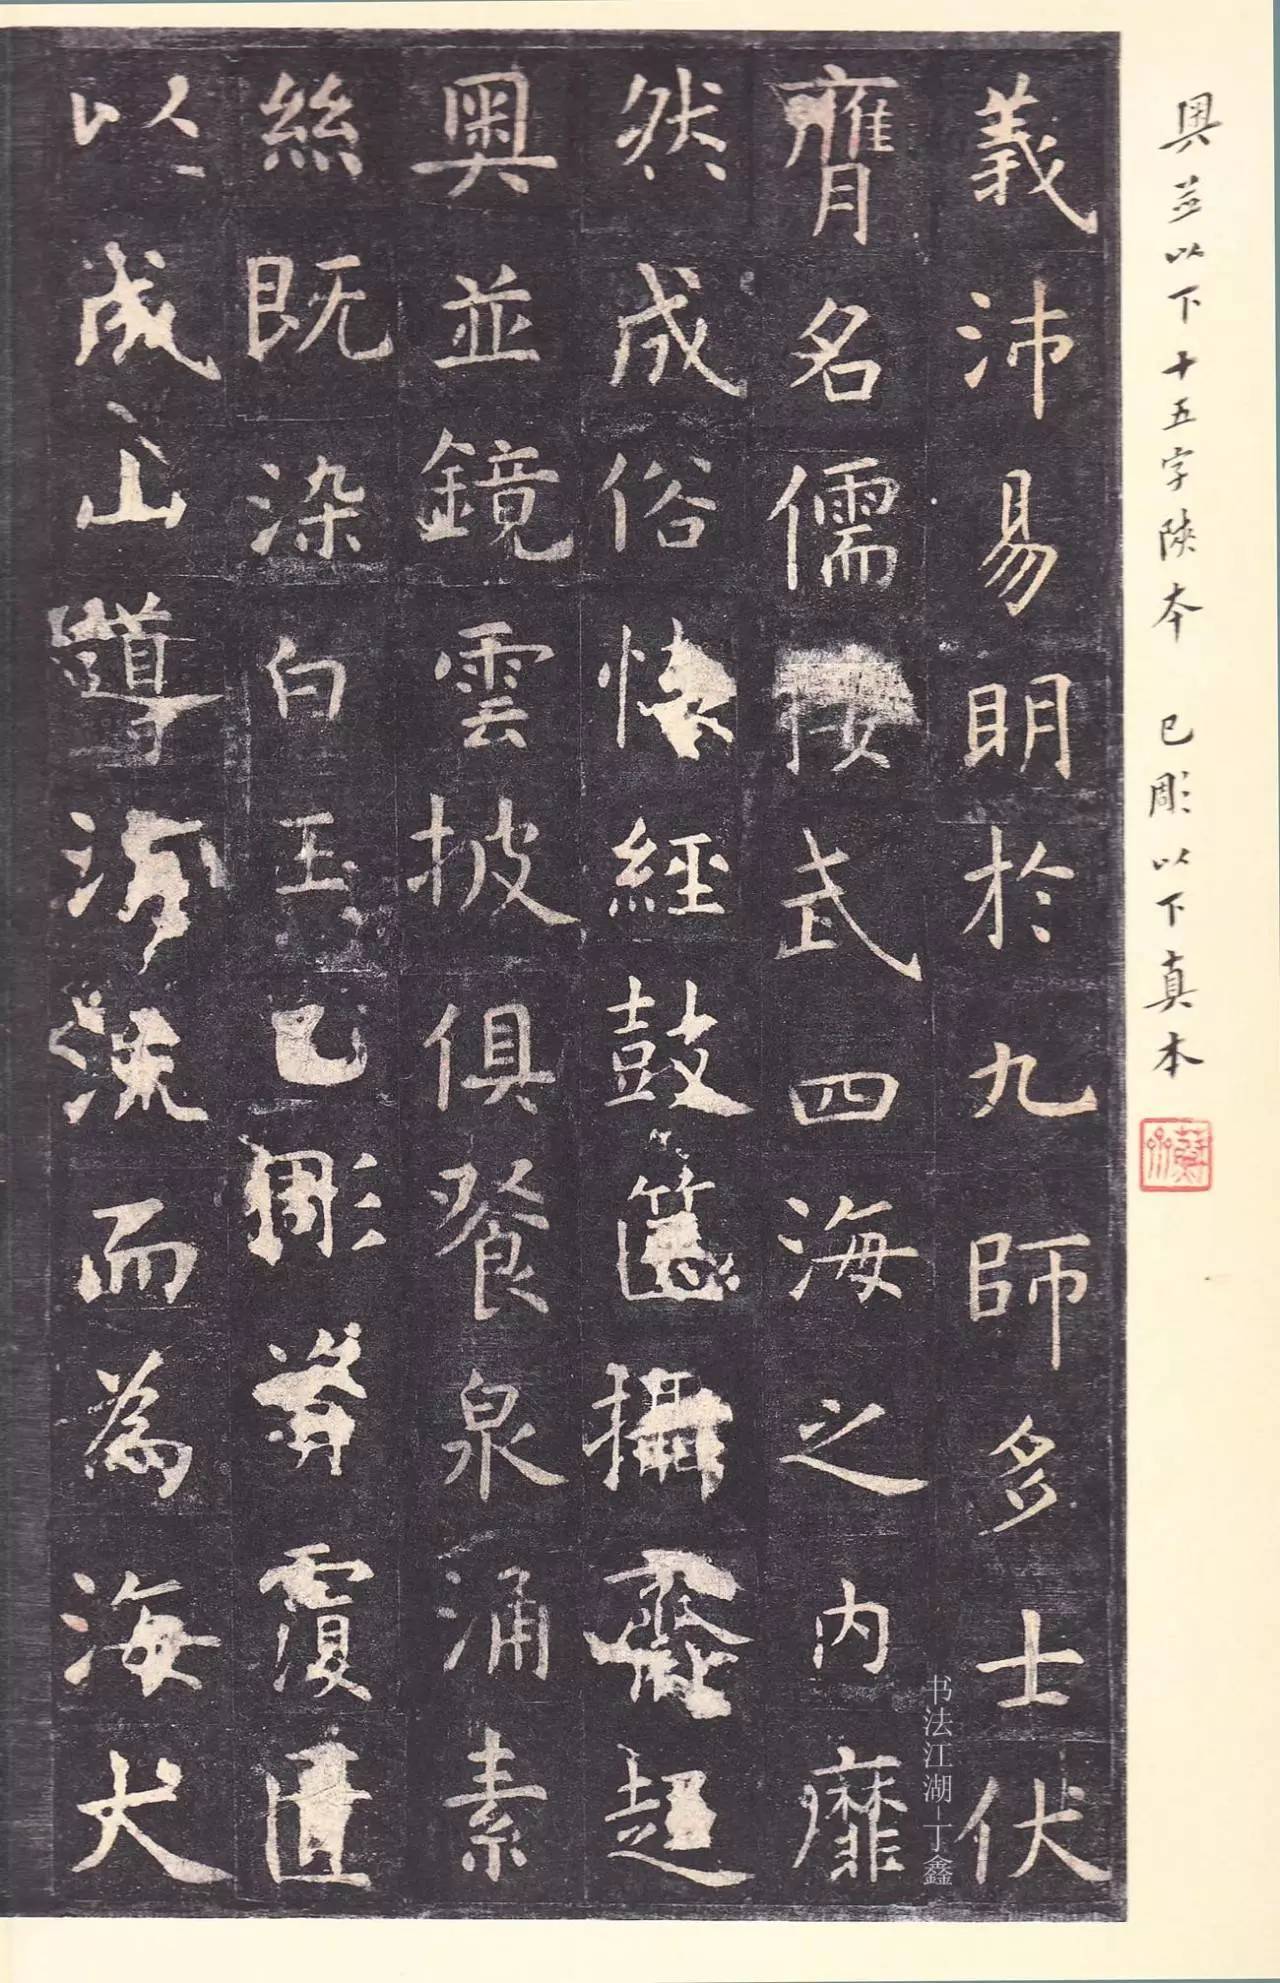 奧並以下十五字陝本 已彫以下真本
義沛易明於九師多士伏
膺名儒接武四海之内靡
然成俗懷經鼓篋攝齊趍
奧並鏡雲披俱餐泉涌素
絲既染白玉已彫資覆匱
以成山導涓流而為海大
书法江湖-丁鑫